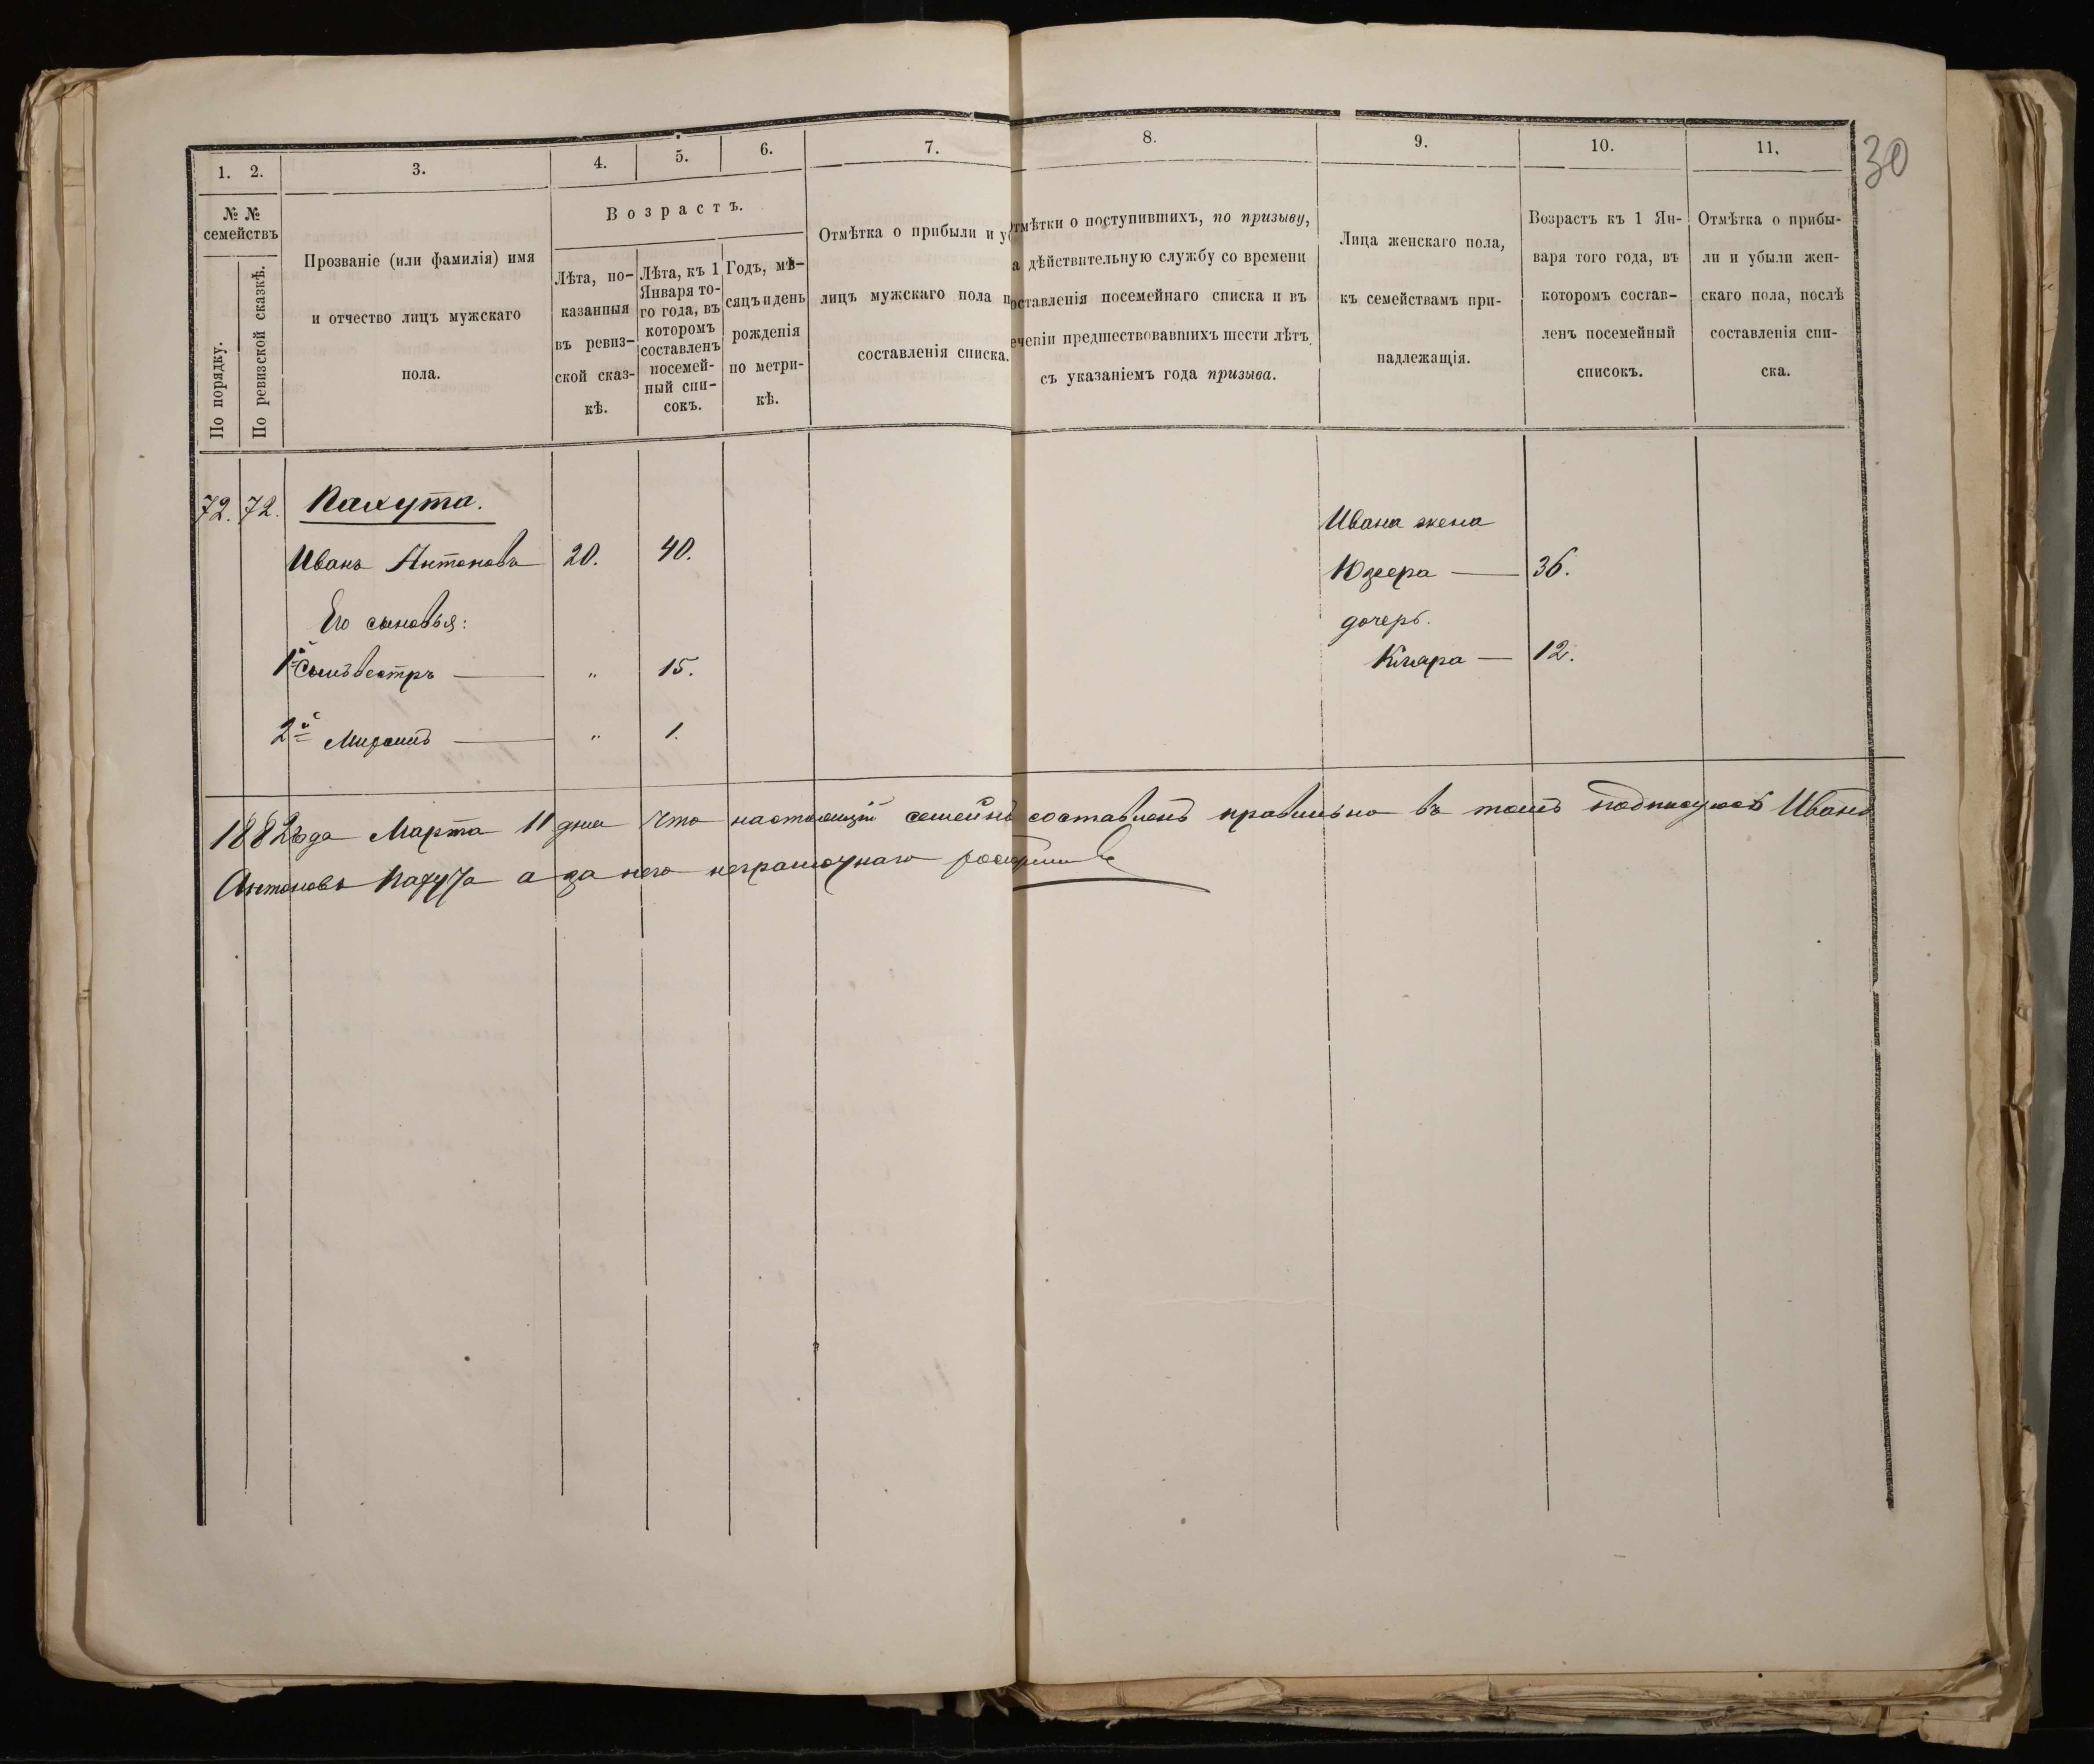 30
1. 2. 3. 4. 5. 6. 7. 8. 9. 10. 11.
№ №
семействъ
По порядку.
По ревизской сказкѣ.
Прозваніе (или фамилія) имя
и отчество лицъ мужскаго
пола.
Возрастъ.
Лѣта, по-
казанныя
въ ревиз-
ской сказ-
кѣ.
Лѣта, къ 1
Января то-
го года, въ
которомъ
составленъ
посемей-
ный спи-
сокъ.
Годъ, мѣ-
сяцъ и день
рожденія
по метри-
кѣ.
Отмѣтка о прибыли и у
лицъ мужскаго пола п
составленія списка.
Отмѣтки о поступившихъ, по призыву,
а дѣйствительную службу со времени
оставленія посемейнаго списка и въ
еченіи предшествовавшихъ шести лѣтъ,
съ указаніемъ года призыва.
Лица женскаго пола,
къ семействамъ при-
надлежащія.
Возрастъ къ 1 Ян-
варя того года, въ
которомъ состав-
ленъ посемейный
списокъ.
Отмѣтка о прибы-
ли и убыли жен-
скаго пола, послѣ
составленія спи-
ска.
72. 72. Пахута.
Иванъ Антоновъ 20. 40.
Его сыновья:
1й Сильвестръ — " 15.
2й — " 1.
Ивана жена
Юзефа — 36.
дочерь.
Клара — 12.
1882 года Марта 11 дня что настоящій составленъ правильно въ томъ подписуюсь Иванъ
Антоновъ Пахута а за него неграмотнаго